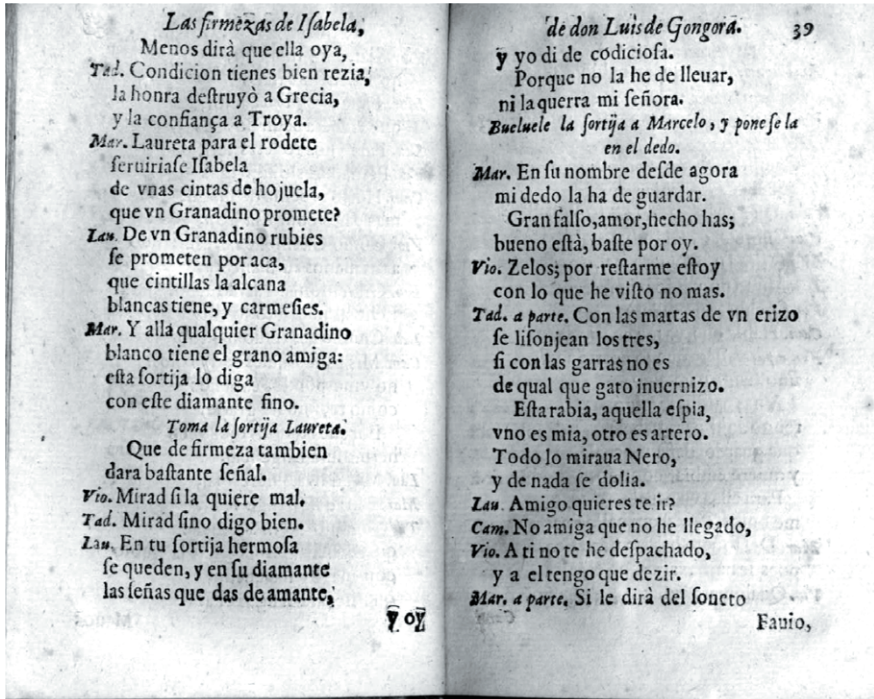 Las firmezas de Iſabela,
Menos dirà que ella oya,
Tad. Condicion tienes bien rezia,
la honra deſtruyò a Grecia,
y la confiança a Troya.
Mar. Laureta para el rodete
ſeruiriaſe Iſabela
de vnas cintas de hojuela,
que vn Granadino promete?
Lau. De vn Granadino rubies
ſe prometen por aca,
que cintillas la alcana
blancas tiene, y carmeſies.
Mar. Y alla qualquier Granadino
blanco tiene el grano amiga:
eſta ſortija lo diga
con eſte diamante fino.
Toma la ſortija Laureta.
Que de firmeza tambien
dara baſtante ſeñal.
Vio. Mirad ſi la quiere mal.
Tad. Mirad ſino digo bien.
Lau. En tu ſortija hermoſa
ſe queden, y en ſu diamante
las ſeñas que das de amante,
y oy
de don Luis de Gongora. 39
y yo di de codicioſa.
Porque no la he de lleuar,
ni la querra mi ſeñora.
Bueluele la ſortija a Marcelo, y poneſe la
en el dedo.
Mar. En ſu nombre deſde agora
mi dedo la ha de guardar.
Gran falſo, amor, hecho has;
bueno eſtà, baſte por oy.
Vio. Zelos; por reſtarme eſtoy
con lo que he viſto no mas.
Tad. a parte. Con las martas de vn erizo
ſe liſonjean los tres,
ſi con las garras no es
de qual que gato inuernizo.
Eſta rabia, aquella eſpia,
vno es mia, otro es artero.
Todo lo miraua Nero,
y de nada ſe dolia.
Lau. Amigo quieres te ir?
Cam. No amiga que no he llegado,
Vio. A ti no te he deſpachado,
y a el tengo que dezir.
Mar. a parte. Si le dirà del ſoneto
Fauio,